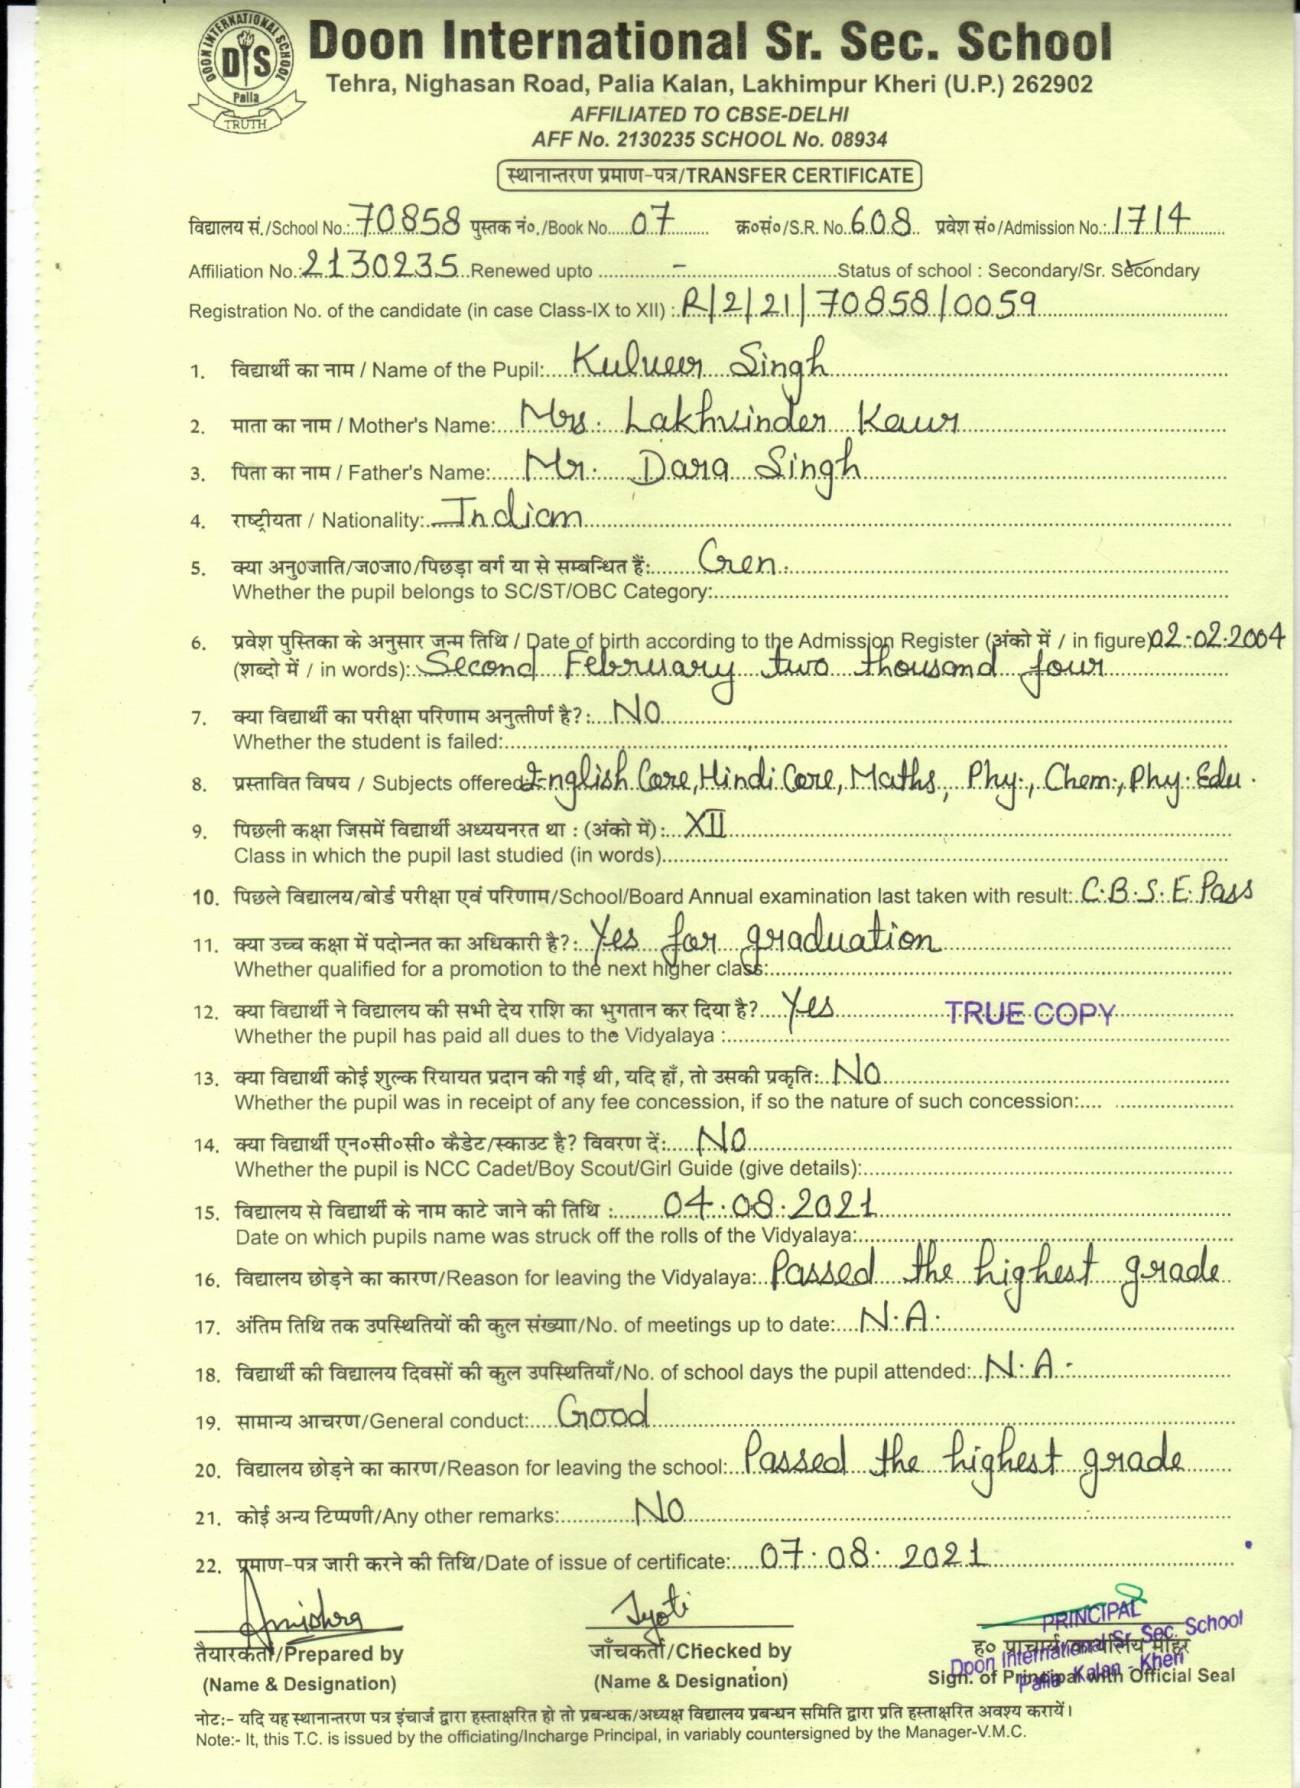 DOON INTERNATIONAL SCHOOL
DIS
Palia
TRUTH
Doon International Sr. Sec. School
Tehra, Nighasan Road, Palia Kalan, Lakhimpur Kheri (U.P.) 262902
AFFILIATED TO CBSE-DELHI
AFF No. 2130235 SCHOOL No. 08934
स्थानान्तरण प्रमाण-पत्र/TRANSFER CERTIFICATE
विद्यालय सं./School No.: 70858 पुस्तक नं०./Book No. 07 क्र०सं०/S.R. No. 608 प्रवेश सं०/Admission No.: 1714
Affiliation No.: 2130235 Renewed upto - Status of school : Secondary/Sr. Secondary
Registration No. of the candidate (in case Class-IX to XII) : R/2/21/70858/0059
1. विद्यार्थी का नाम / Name of the Pupil: Kulveer Singh
2. माता का नाम / Mother's Name: Mrs. Lakhvinder Kaur
3. पिता का नाम / Father's Name: Mr. Dara Singh
4. राष्ट्रीयता / Nationality: Indian
5. क्या अनु0जाति/ज0जा0/पिछड़ा वर्ग या से सम्बन्धित हैं: Gen.
Whether the pupil belongs to SC/ST/OBC Category:
6. प्रवेश पुस्तिका के अनुसार जन्म तिथि / Date of birth according to the Admission Register (अंको में / in figure) 02-02-2004
(शब्दो में / in words): Second February two thousand four
7. क्या विद्यार्थी का परीक्षा परिणाम अनुत्तीर्ण है?: NO
Whether the student is failed:
8. प्रस्तावित विषय / Subjects offered: English Core, Hindi Core, Maths, Phy., Chem., Phy. Edu.
9. पिछली कक्षा जिसमें विद्यार्थी अध्ययनरत था : (अंको में): XII
Class in which the pupil last studied (in words)
10. पिछले विद्यालय/बोर्ड परीक्षा एवं परिणाम/School/Board Annual examination last taken with result: C.B.S.E. Pass
11. क्या उच्च कक्षा में पदोन्नत का अधिकारी है?: Yes for graduation
Whether qualified for a promotion to the next higher class:
12. क्या विद्यार्थी ने विद्यालय की सभी देय राशि का भुगतान कर दिया है? Yes TRUE COPY
Whether the pupil has paid all dues to the Vidyalaya :
13. क्या विद्यार्थी कोई शुल्क रियायत प्रदान की गई थी, यदि हाँ, तो उसकी प्रकृति: NO
Whether the pupil was in receipt of any fee concession, if so the nature of such concession:
14. क्या विद्यार्थी एन०सी०सी० कैडेट/स्काउट है? विवरण दें: NO
Whether the pupil is NCC Cadet/Boy Scout/Girl Guide (give details):
15. विद्यालय से विद्यार्थी के नाम काटे जाने की तिथि : 04.08.2021
Date on which pupils name was struck off the rolls of the Vidyalaya:
16. विद्यालय छोड़ने का कारण/Reason for leaving the Vidyalaya: Passed the highest grade
17. अंतिम तिथि तक उपस्थितियों की कुल संख्याा/No. of meetings up to date: N.A.
18. विद्यार्थी की विद्यालय दिवसों की कुल उपस्थितियाँ/No. of school days the pupil attended: N.A.
19. सामान्य आचरण/General conduct: Good
20. विद्यालय छोड़ने का कारण/Reason for leaving the school: Passed the highest grade
21. कोई अन्य टिप्पणी/Any other remarks: NO
22. प्रमाण-पत्र जारी करने की तिथि/Date of issue of certificate: 07.08.2021
Jyoti
PRINCIPAL
Doon International Sr. Sec. School
Palia Kalan - Kheri
तैयारकर्ता/Prepared by जाँचकर्ता/Checked by ह० प्राचार्य/कार्यालय मोहर
(Name & Designation) (Name & Designation) Sign. of Principal with Official Seal
नोट:- यदि यह स्थानान्तरण पत्र इंचार्ज द्वारा हस्ताक्षरित हो तो प्रबन्धक/अध्यक्ष विद्यालय प्रबन्धन समिति द्वारा प्रति हस्ताक्षरित अवश्य करायें।
Note:- It, this T.C. is issued by the officiating/Incharge Principal, in variably countersigned by the Manager-V.M.C.